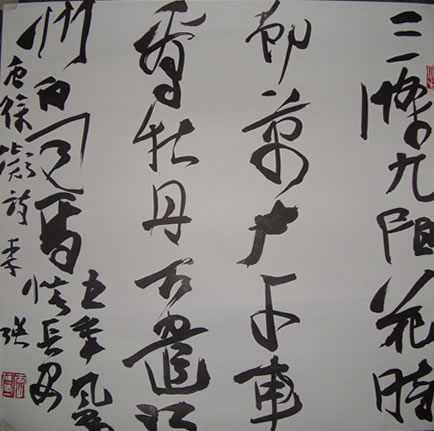 三條九陌花時
節萬戶千車
看牡丹遣江
州白司馬
五年風景
憶長安
唐徐凝詩 李強